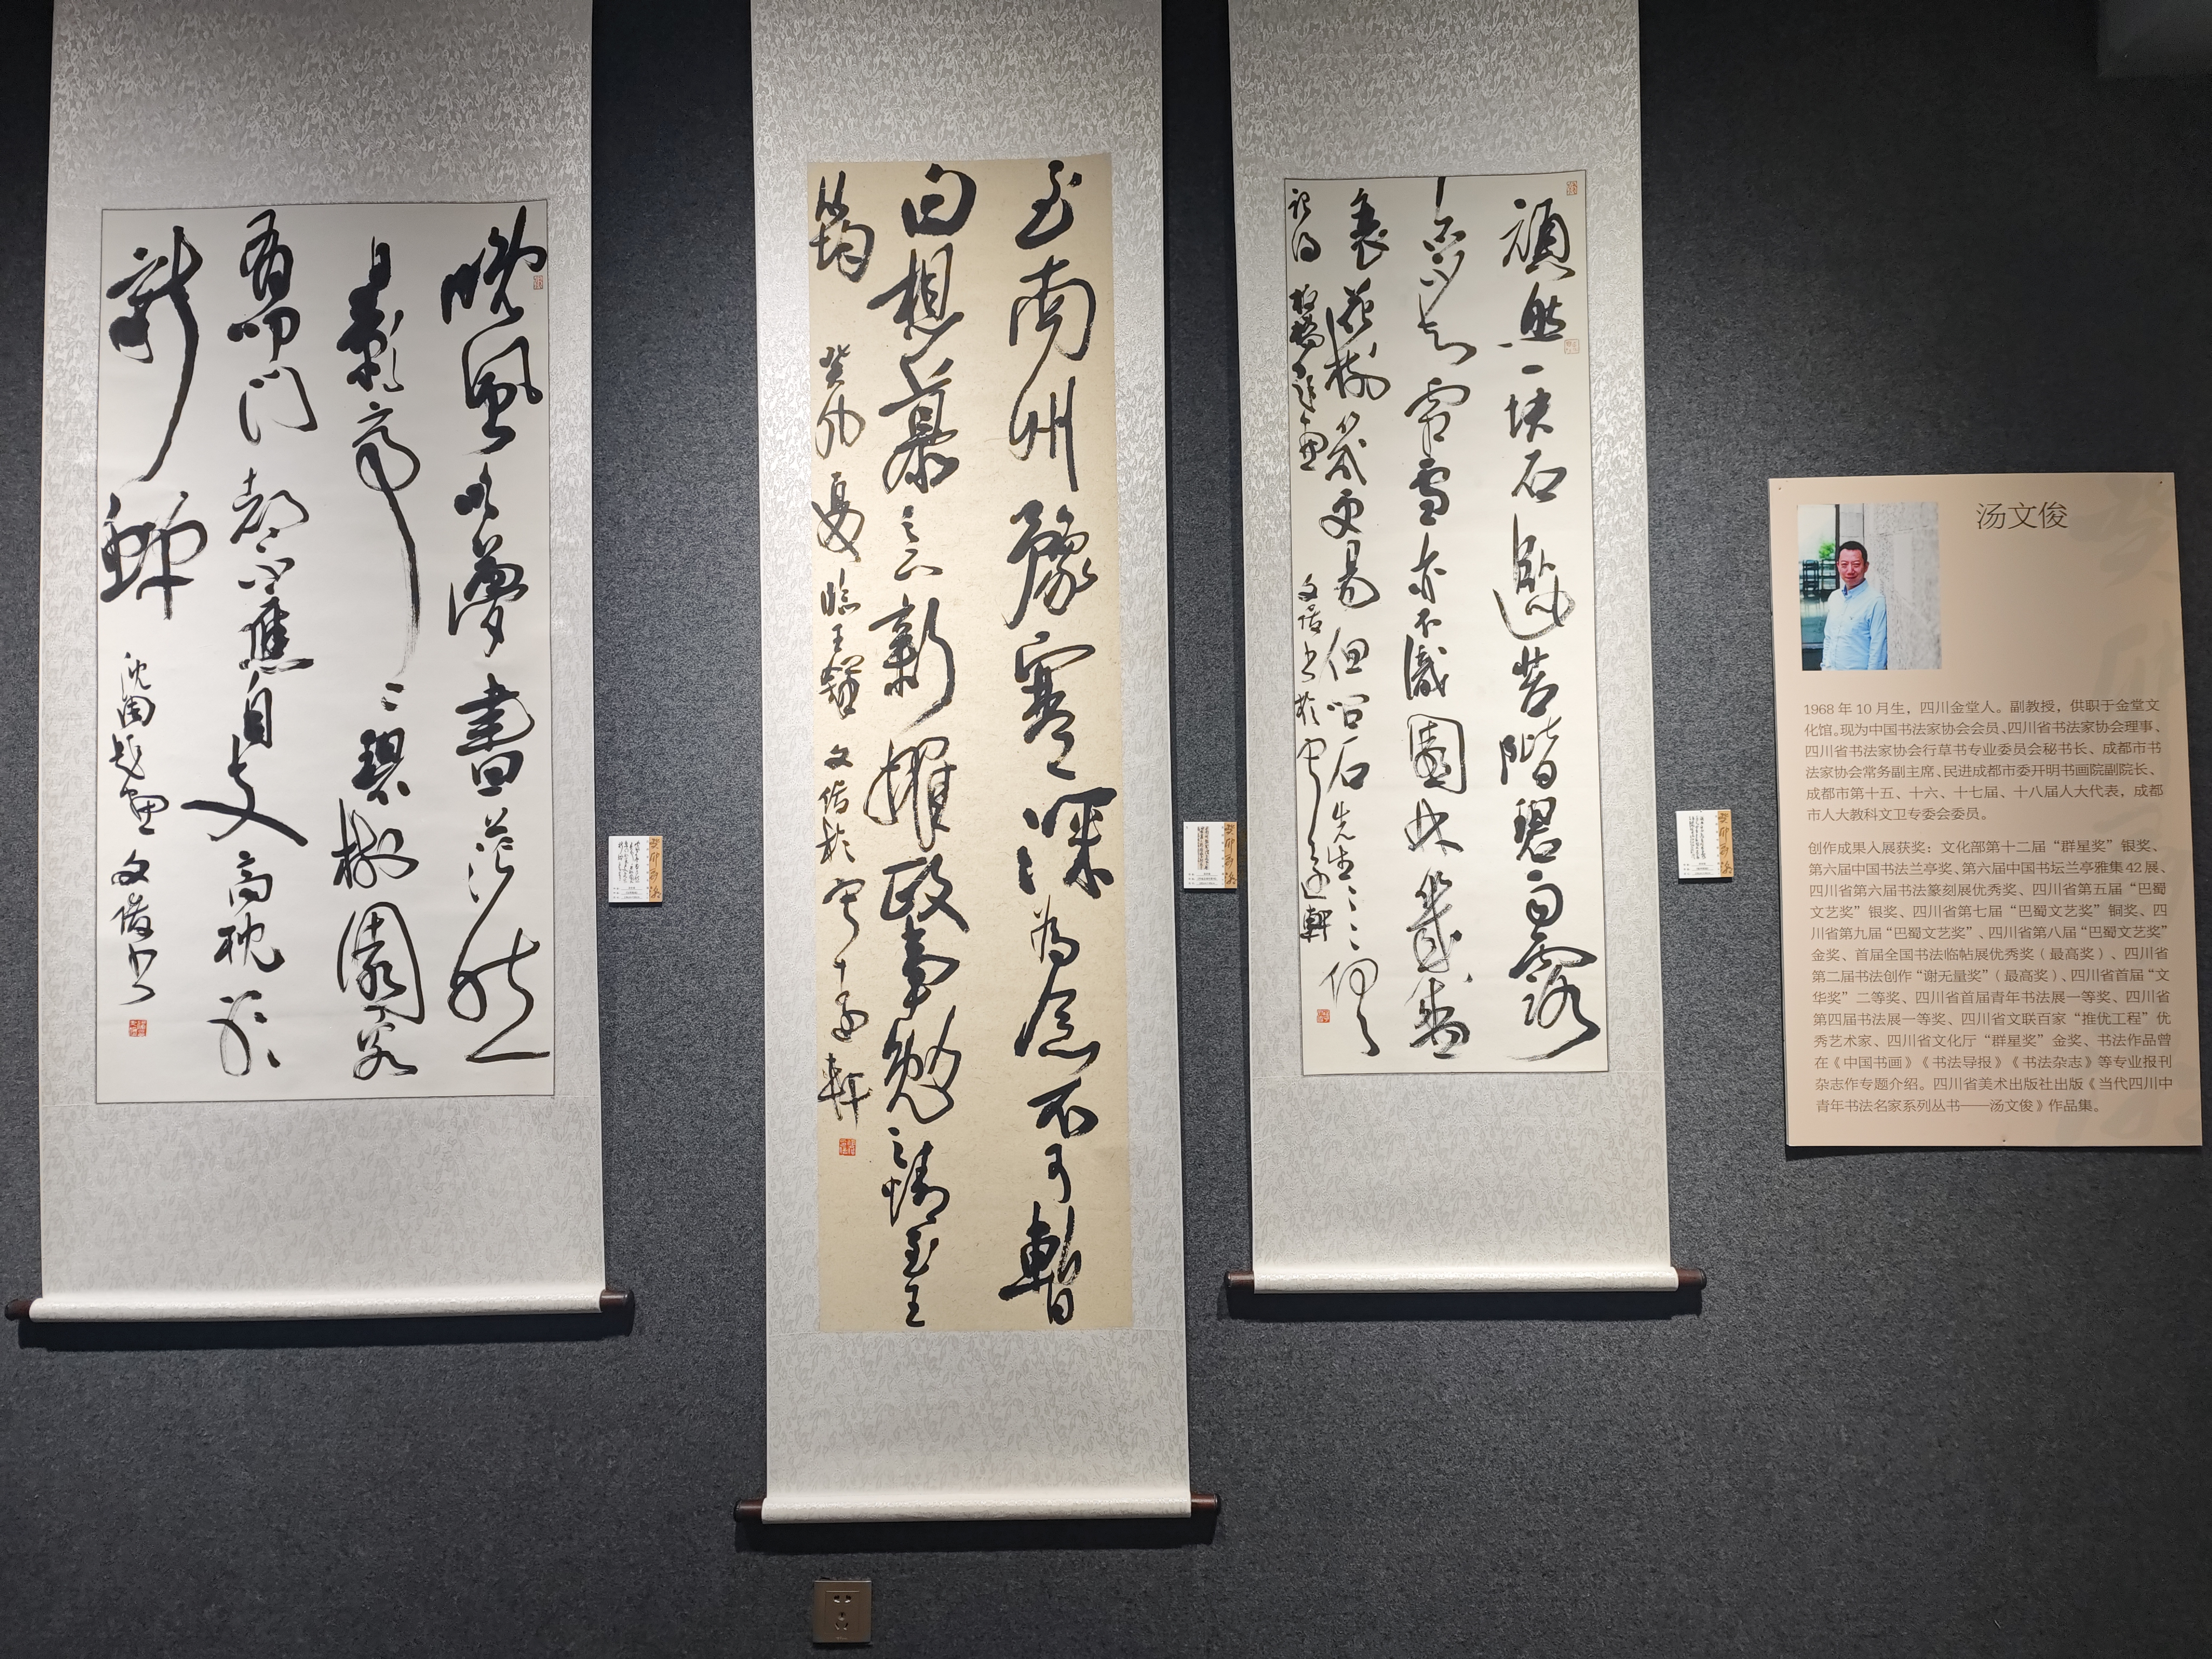 晚風吹夢書茫然
碧樹園
有叩門都不應自支高枕聽
新蟬 沈周題畫 文俊書
至南州豫寒深為念不可暫
白想慕之云新耀政事勉之請至王
筠 癸卯夏臨王鐸 文俊於 軒
頑然一塊石卧此苔階碧雨露
亦不知霜雪亦不識園林幾盛
衰花樹幾更易但問石先生〻〻俱
記得 板橋題畫 文俊書於 軒
汤文俊
1968 年 10 月生，四川金堂人。副教授，供职于金堂文
化馆。现为中国书法家协会会员、四川省书法家协会理事、
四川省书法家协会行草书专业委员会秘书长、成都市书
法家协会常务副主席、民进成都市委开明书画院副院长、
成都市第十五、十六、十七届、十八届人大代表，成都
市人大教科文卫专委会委员。
创作成果入展获奖：文化部第十二届“群星奖”银奖、
第六届中国书法兰亭奖、第六届中国书坛兰亭雅集 42 展、
四川省第六届书法篆刻展优秀奖、四川省第五届“巴蜀
文艺奖”银奖、四川省第七届“巴蜀文艺奖”铜奖、四
川省第九届“巴蜀文艺奖”、四川省第八届“巴蜀文艺奖”
金奖、首届全国书法临帖展优秀奖（最高奖）、四川省
第二届书法创作“谢无量奖”（最高奖）、四川省首届“文
华奖”二等奖、四川省首届青年书法展一等奖、四川省
第四届书法展一等奖、四川省文联百家“推优工程”优
秀艺术家、四川省文化厅“群星奖”金奖、书法作品曾
在《中国书画》《书法导报》《书法杂志》等专业报刊
杂志作专题介绍。四川省美术出版社出版《当代四川中
青年书法名家系列丛书——汤文俊》作品集。